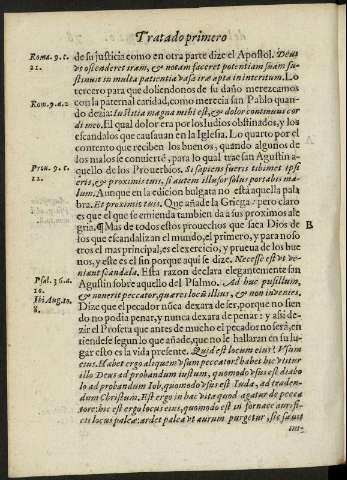 Tratado primero
Roma. 9. c. de su justicia como en otra parte dize el Apostol. Deus
22. vt ostenderet iram, & notam faceret potentiam suam su-
stinuit in multa patientia vasa iræ apta in interitum. Lo
tercero para que doliendonos de su daño merezcamos
Rom. 9. a. 2 con la paternal caridad, como merecia san Pablo quan-
do dezia: Iustitia magna mihi est, & dolor continuus cor
di meo. El qual dolor era por los Iudios obstinados, y los
escandalos que causauan en la Iglesia. Lo quarto por el
contento que reciben los buenos, quando algunos de
los malos se conuierté, para lo qual trae san Agustin a-
Prou. 9. c. quello de los Prouerbios. Si sapiens fueris tibimet ipsi
12. eris, & proximis tuis. si autem illusor solus portabis ma-
lum. Aunque en la edicion bulgata no está aquella pala
bra. Et proximis tuis. Que añade la Griega: pero claro
es que el que se emienda tambien da a sus proximos ale
gria. ¶ Mas de todos estos prouechos que saca Dios de B
los que escandalizan el mundo, el primero, y para noso
tros el mas principal, es el exercicio, y prueua de los bue
nos, y este es el fin porque aqui se dize. Necesse est vt ve-
niant scandala. Esta razon declara elegantemente san
Psal. 36. a. Agustin sobre aquello del Psalmo. Ad huc pusillum,
10. & non erit peccator, quæres locũ illius, & non inuenies.
Ibi Aug. to. Dize que el pecador nũca dexara de ser, porque no sien
8. do no podia penar, y nunca dexara de penar: y assi de-
zir el Profeta que antes de mucho el pecador no será, en
tiendese segun lo que añade, que no le hallaran en su lu-
gar esto es la vida presente. Quid est locum eius? Vsum
eius. Habet ergo aliquem vsum peccator? habet hic vtitur
illo Deus ad probandum iustum, quomodo vsus est diabo
lo ad probandum Iob, quomodo vsus est Iuda, ad traden-
dum Christum. Est ergo in hac vita quod agatur de pecca
tore: hic est ergo locus eius, quomodo est in fornace aurifi-
cis locus paleæ: ardet palea vt aurum purgetur, sic sæuit
im-